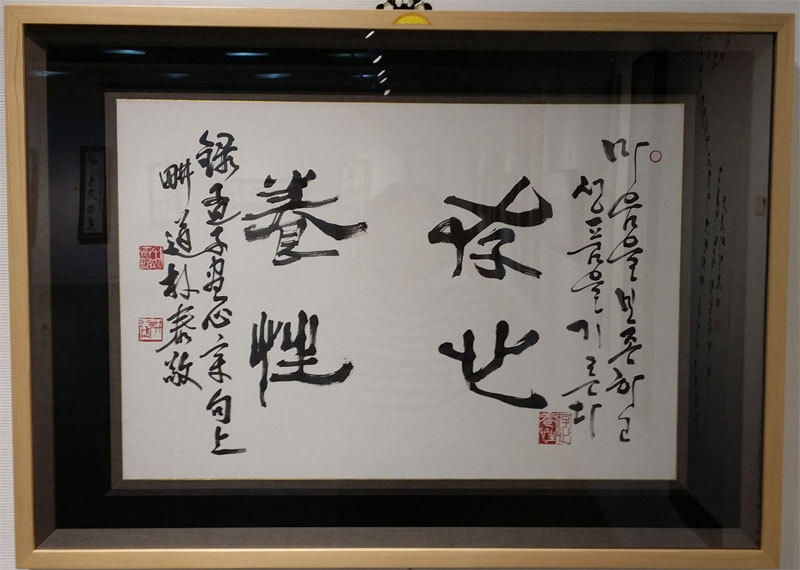 마음을 보존하고
성품을 기른다
存心
養性
錄孟子盡心章句上
畊道朴泰敬